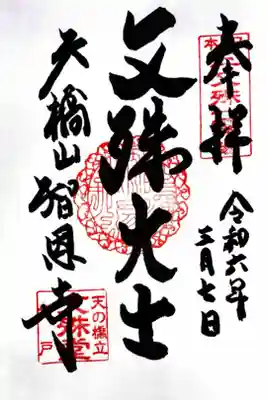 奉拝
令和六年
三月七日
文殊大士
天橋山智恩寺
天の橋立
文殊堂